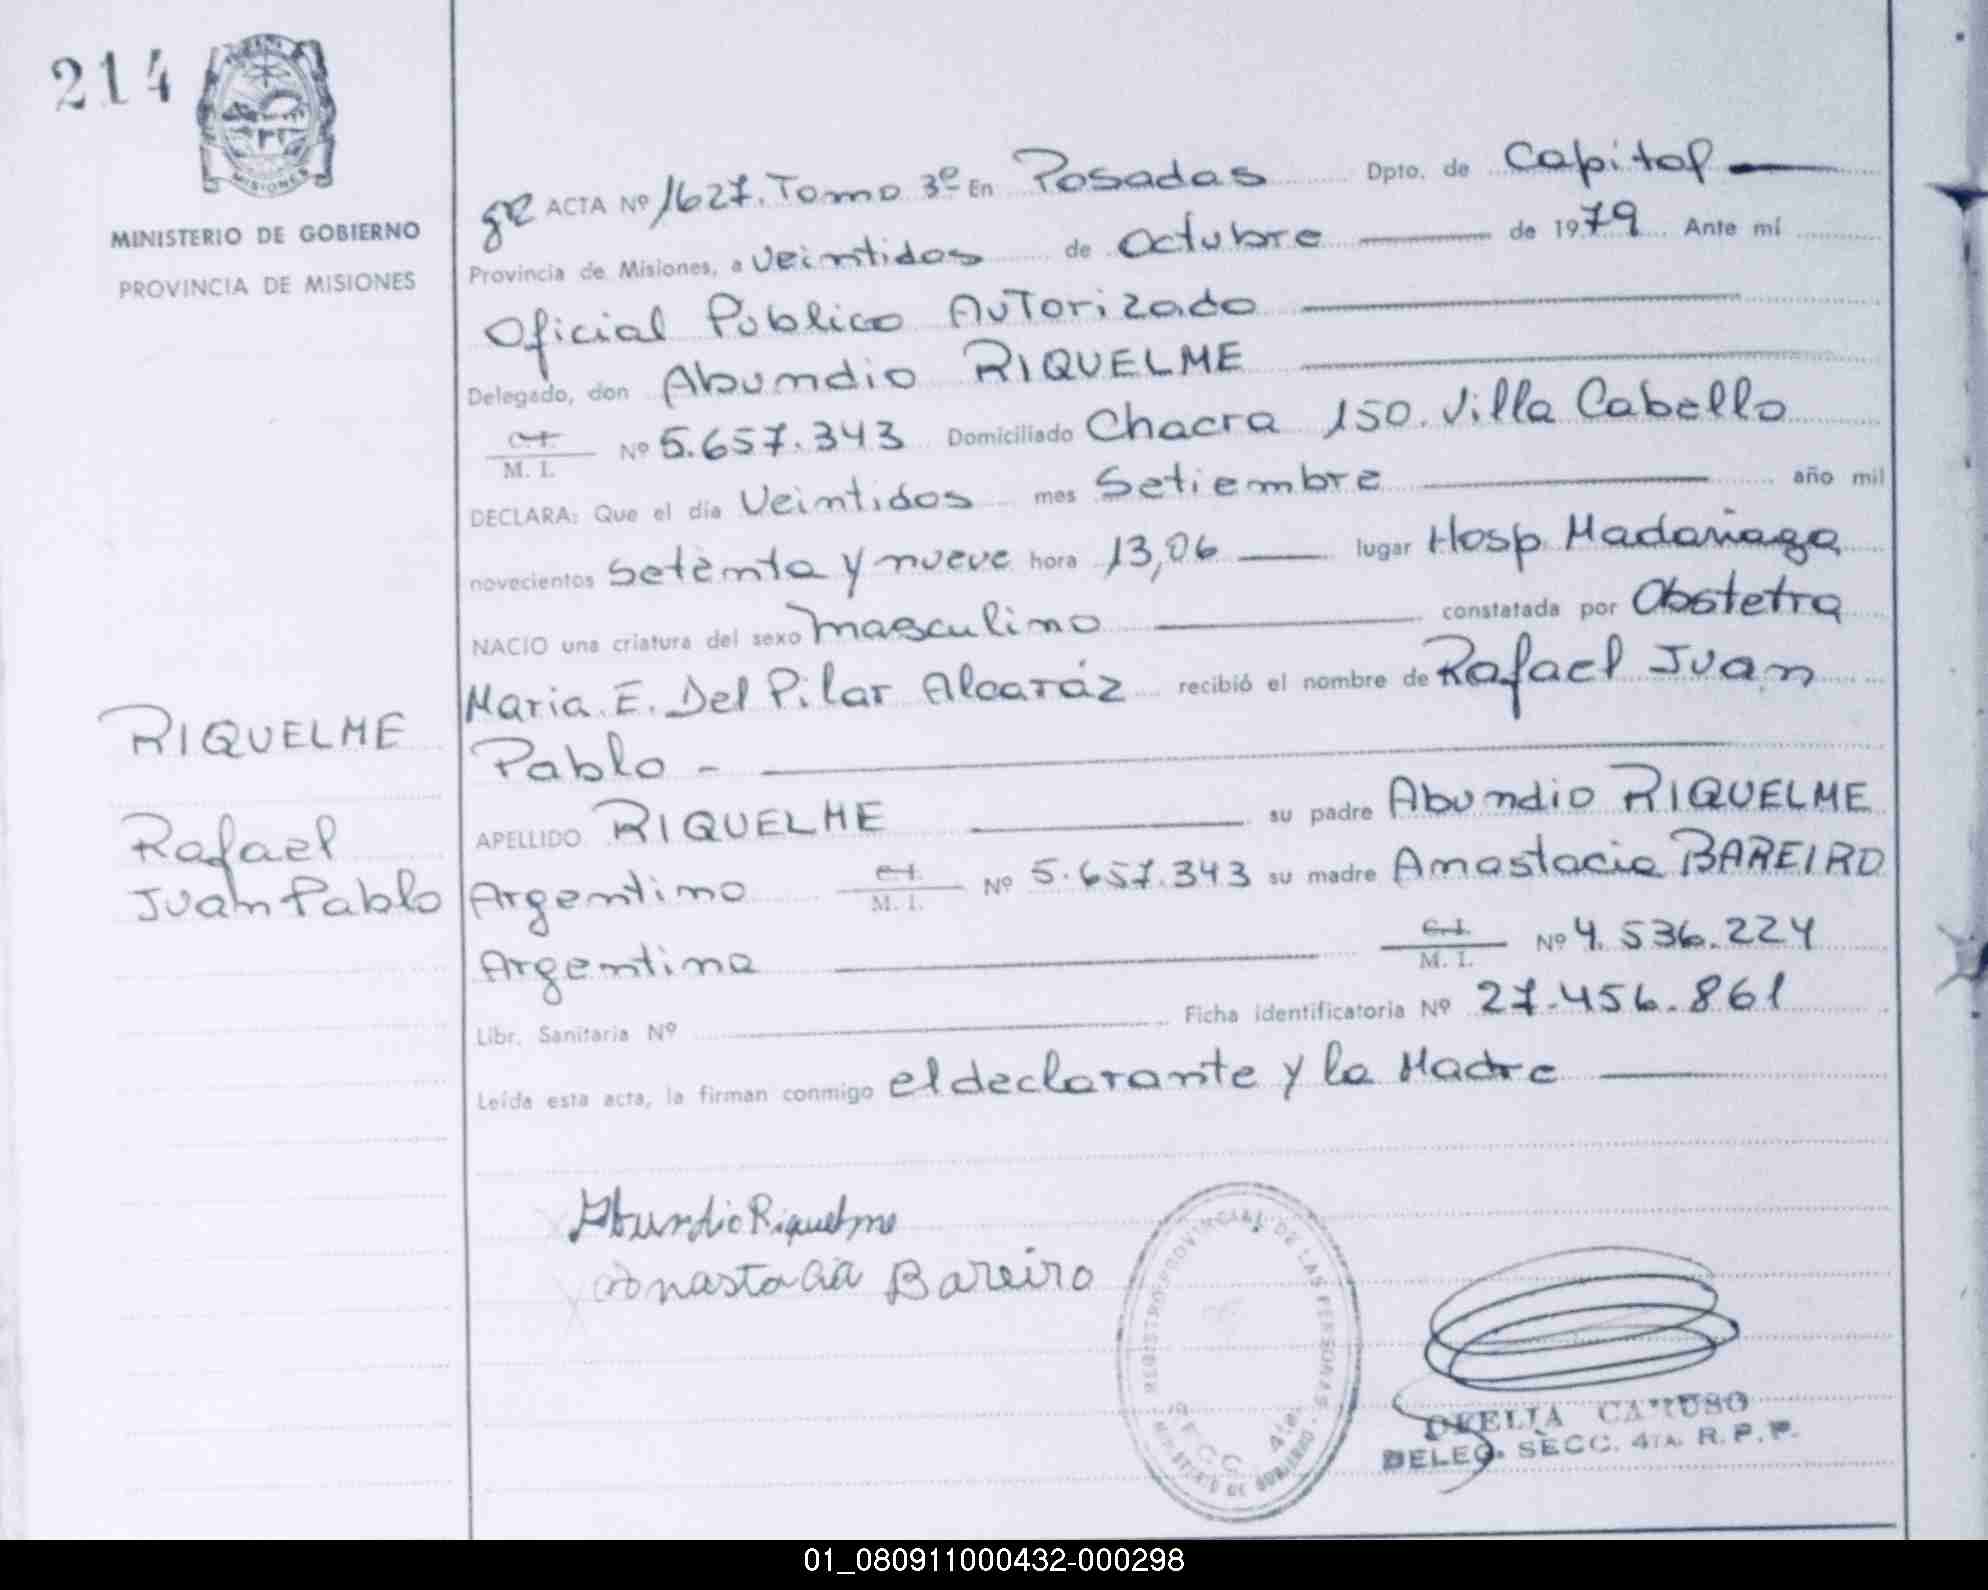 214
MISIONES
MINISTERIO DE GOBIERNO
PROVINCIA DE MISIONES
RIQUELME
Rafael
Juan Pablo
ACTA Nº 1627. Tomo 3º En Posadas Dpto. de Capital
Provincia de Misiones, a veintidos de Octubre de 1979 Ante mí
Oficial Publico Autorizado
Delegado, don Abundio RIQUELME
C.I. / M. I. Nº 5.657.343 Domiciliado Chacra 150. Villa Cabello
DECLARA: Que el día Veintidos mes Setiembre año mil
novecientos setenta y nueve hora 13,06 lugar Hosp Madariaga
NACIO una criatura del sexo masculino constatada por Obstetra
Maria. E. Del Pilar Alcaráz recibió el nombre de Rafael Juan
Pablo -
APELLIDO RIQUELME su padre Abundio RIQUELME
Argentino C.I. / M. I. Nº 5.657.343 su madre Anastacia BAREIRO
Argentina C.I. / M. I. Nº 4.536.224
Libr. Sanitaria Nº Ficha identificatoria Nº 27.456.861
Leída esta acta, la firman conmigo el declarante y la Madre
Abundio Riquelme
Anastacia Bareiro
REGISTRO PROVINCIAL DE LAS PERSONAS
SECC. 4ta.
MINISTERIO DE GOBIERNO
OFELIA CARUSO
DELEG. SECC. 4TA. R. P. P.
01_080911000432-000298